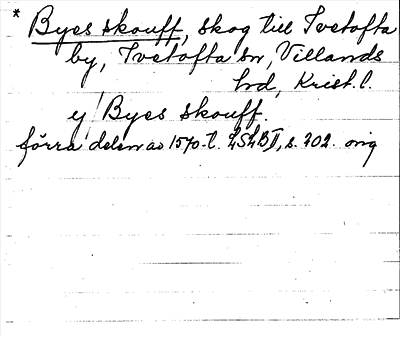 * Byes skouff, skog till Tvetofta
by, Tvetofta sn, Villands
hd, Krist. l.
y Byes skouff.
förra delen av 1570-t. LSLB II, s. 202. orig